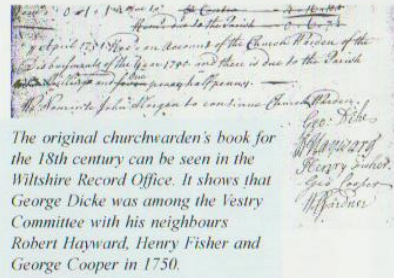 to the Parish
April 1751 an Account of the Church Warden of the
Disbursments of the Year 1750 and there is due to the Parish
and penny halfpenny
We Nominate John Morgan to continue Church Warden
Geo: Dicke
Hayward
Henry Fisher
Geo Cooper
The original churchwarden's book for
the 18th century can be seen in the
Wiltshire Record Office. It shows that
George Dicke was among the Vestry
Committee with his neighbours
Robert Hayward, Henry Fisher and
George Cooper in 1750.